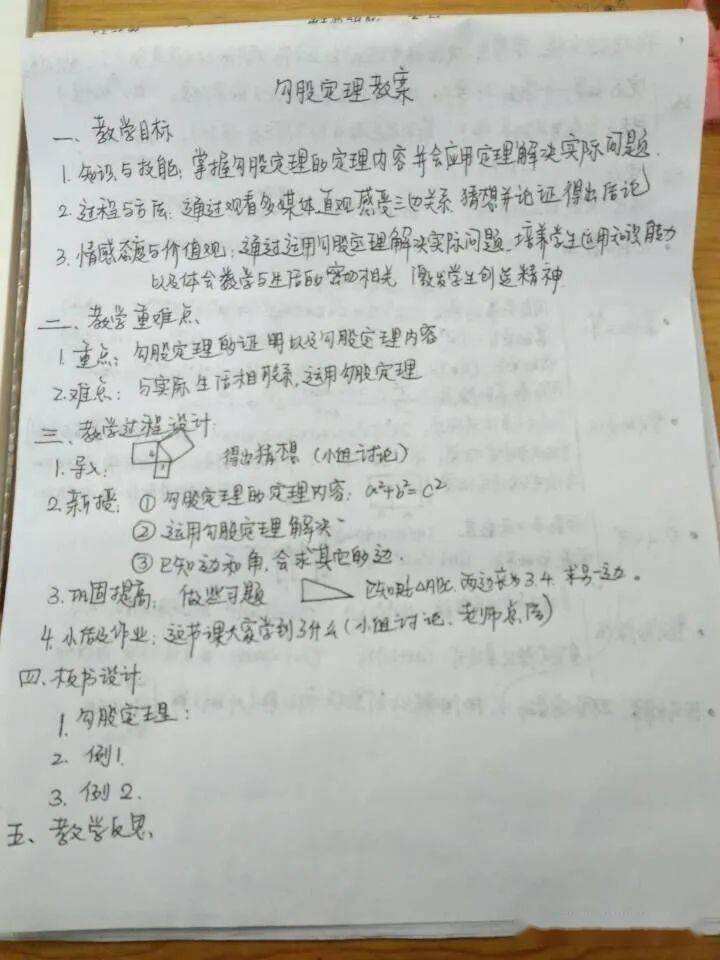 勾股定理教案
一、教学目标
1. 知识与技能：掌握勾股定理的定理内容并会应用定理解决实际问题.
2. 过程与方法：通过观看多媒体直观感受三边关系 猜想并论证得出结论
3. 情感态度与价值观：通过运用勾股定理解决实际问题、培养学生运用知识能力
以及体会数学与生活的密切相关 激发学生创造精神.
二、教学重难点
1. 重点：勾股定理的证明以及勾股定理内容
2. 难点：与实际生活相联系，运用勾股定理
三、教学过程设计：
1. 导入： 得出猜想（小组讨论）
2. 新授：① 勾股定理的定理内容：a²+b²=c²
② 运用勾股定理解决
③ 已知边和角，会求其它的边.
3. 巩固提高：做些习题 已知Rt△ABC. 两边长为3.4. 求另一边.
4. 小结及作业：这节课大家学到了什么（小组讨论、老师总结）
四、板书设计
1. 勾股定理：
2. 例1.
3. 例2.
五、教学反思、